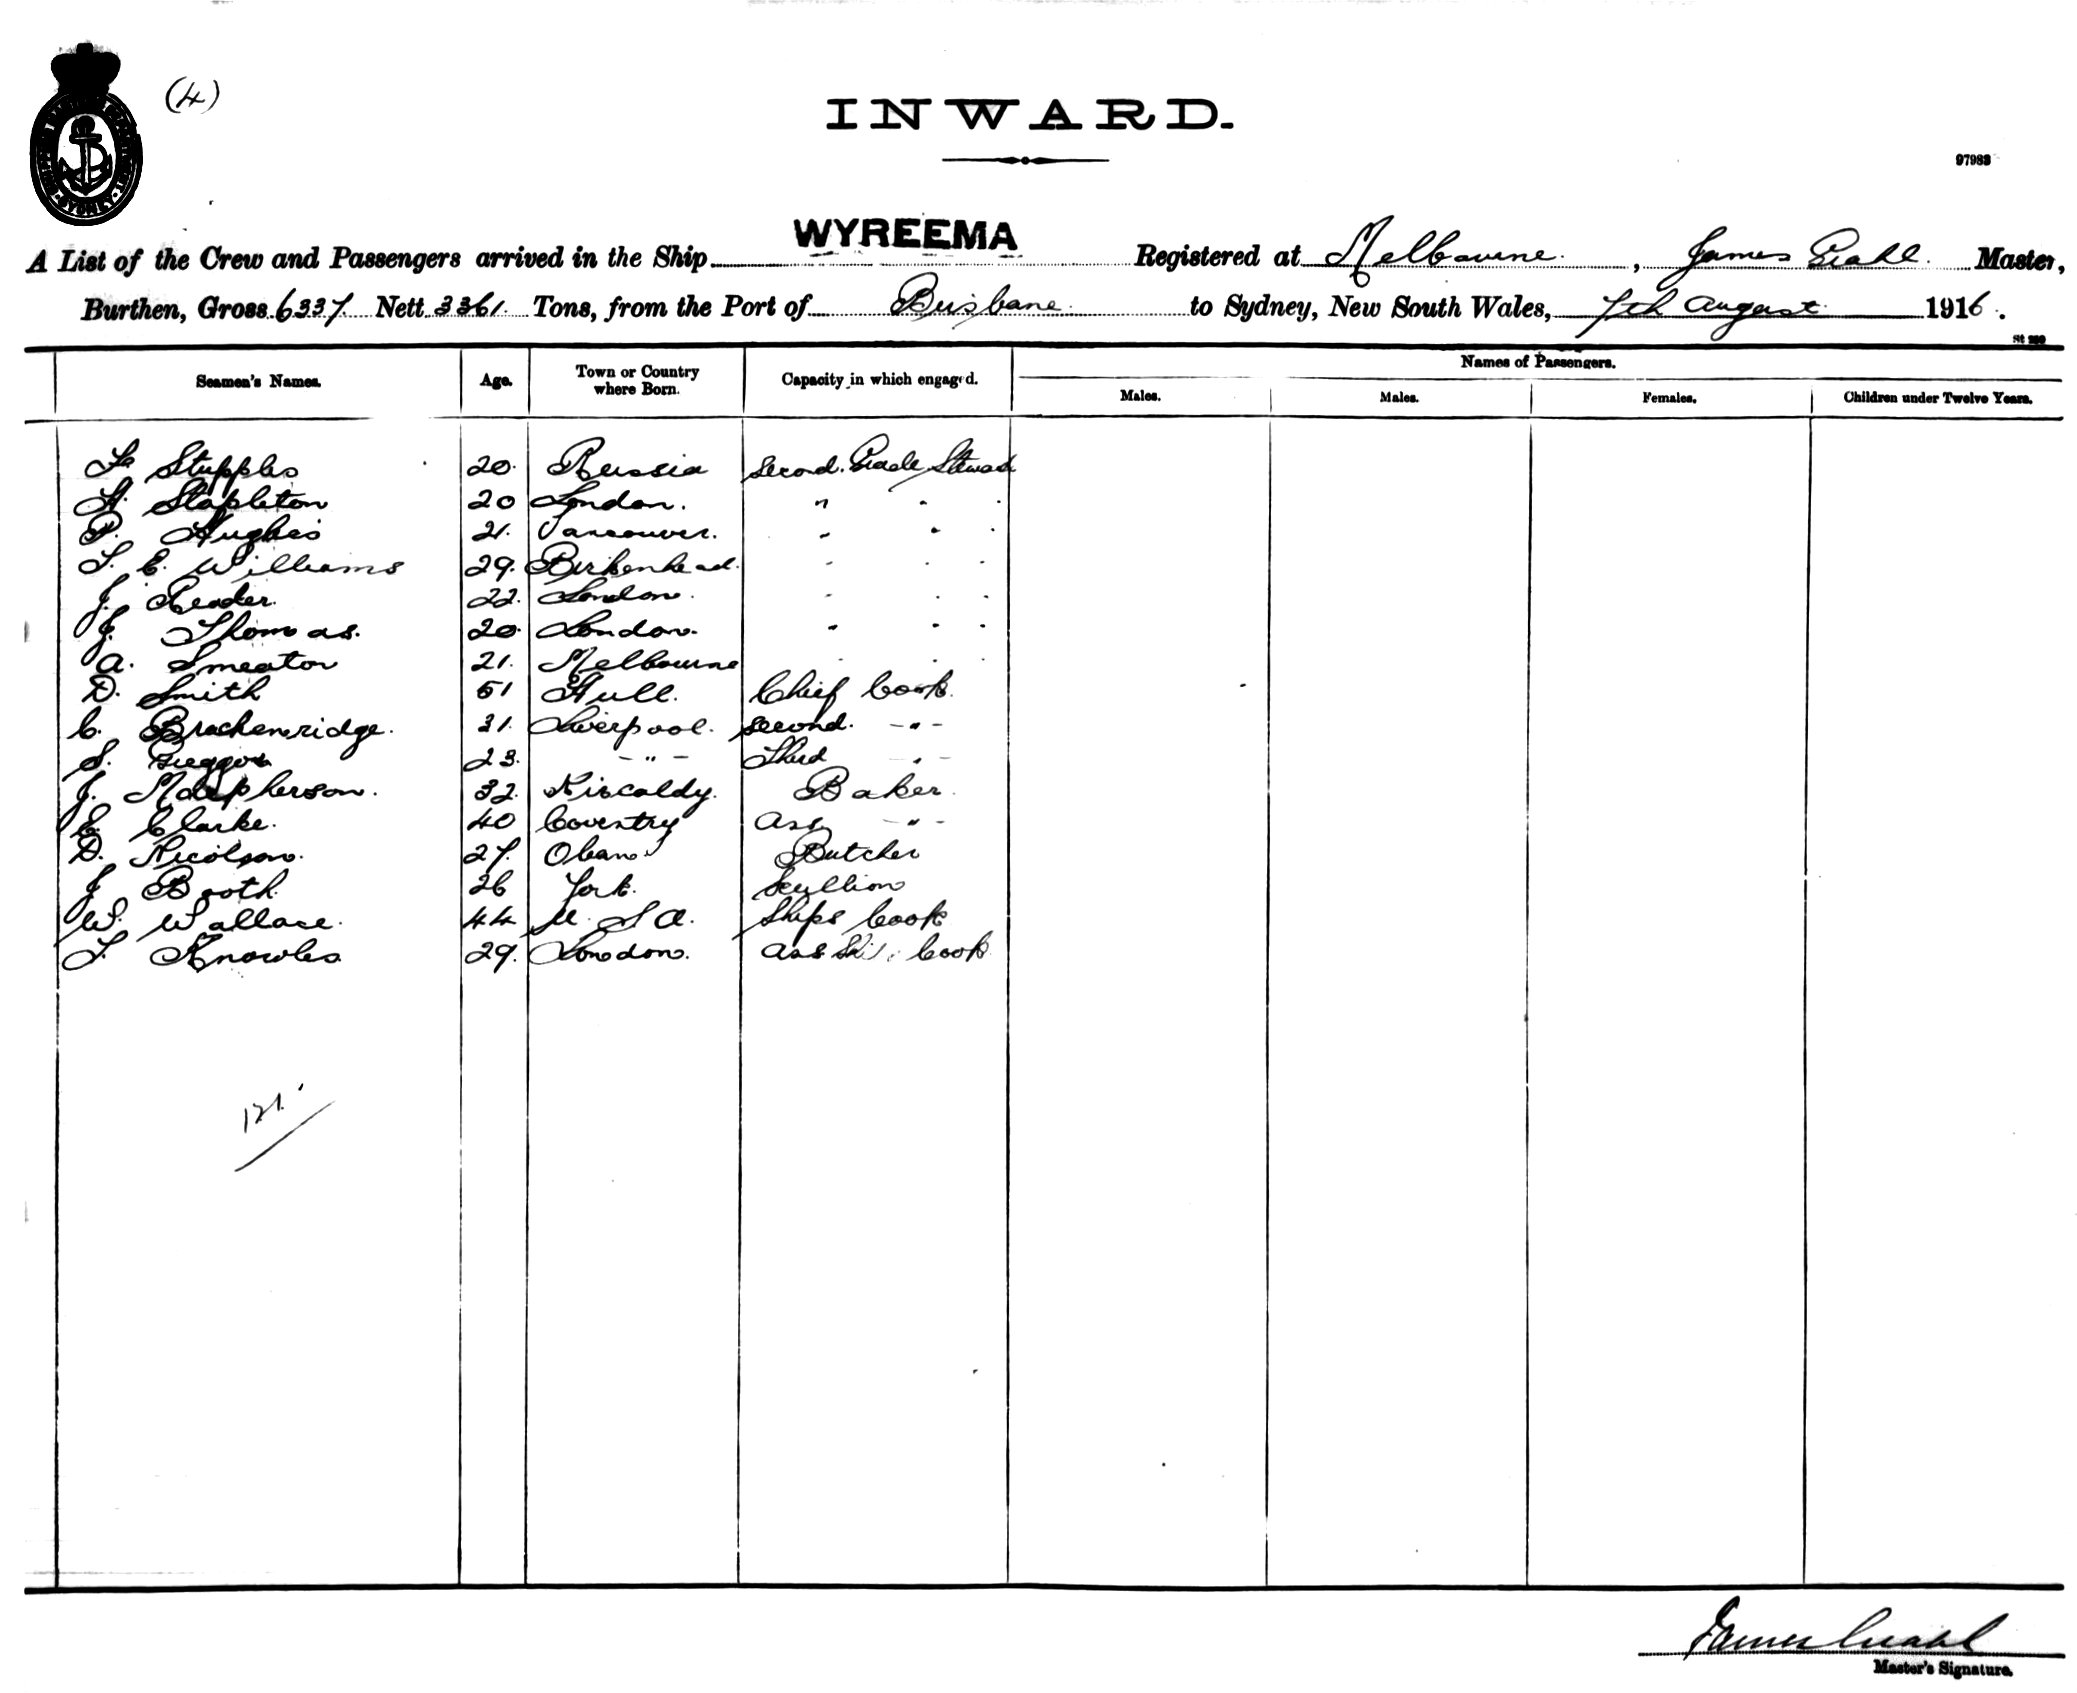 (4)
INWARD.
97983
A List of the Crew and Passengers arrived in the Ship WYREEMA Registered at Melbourne, James Grahl Master,
Burthen, Gross 6337 Nett 3361 Tons, from the Port of Brisbane to Sydney, New South Wales, 7th August 1916.
Names of Passengers.
Seamen's Names. Age. Town or Country where Born. Capacity in which engaged. Males. Males. Females. Children under Twelve Years.
F. Stupples 20. Russia Second. Grade Steward
H. Stapleton 20 London. " " "
P. Hughes 21. Vancouver. " " "
T. E. Williams 29. Birkenhead. " " "
J. Reader 22. London. " " "
J. Thomas. 20. London. " " "
A. Smeaton 21. Melbourne " " "
D. Smith 51 Hull. Chief Cook.
C. Brackenridge. 31. Liverpool. Second. - " -
S. Greggor 23. - " - Third - " -
J. Macpherson. 32. Kircaldy. Baker.
E. Clarke. 40 Coventry Ass - " -
D. Nicolson. 27. Oban Butcher
J. Booth. 26 York. Scullion
W. Wallace. 44 U. S A. Ships Cook
T. Knowles. 29. London. Ass Cook
121.
James Grahl
Master's Signature.